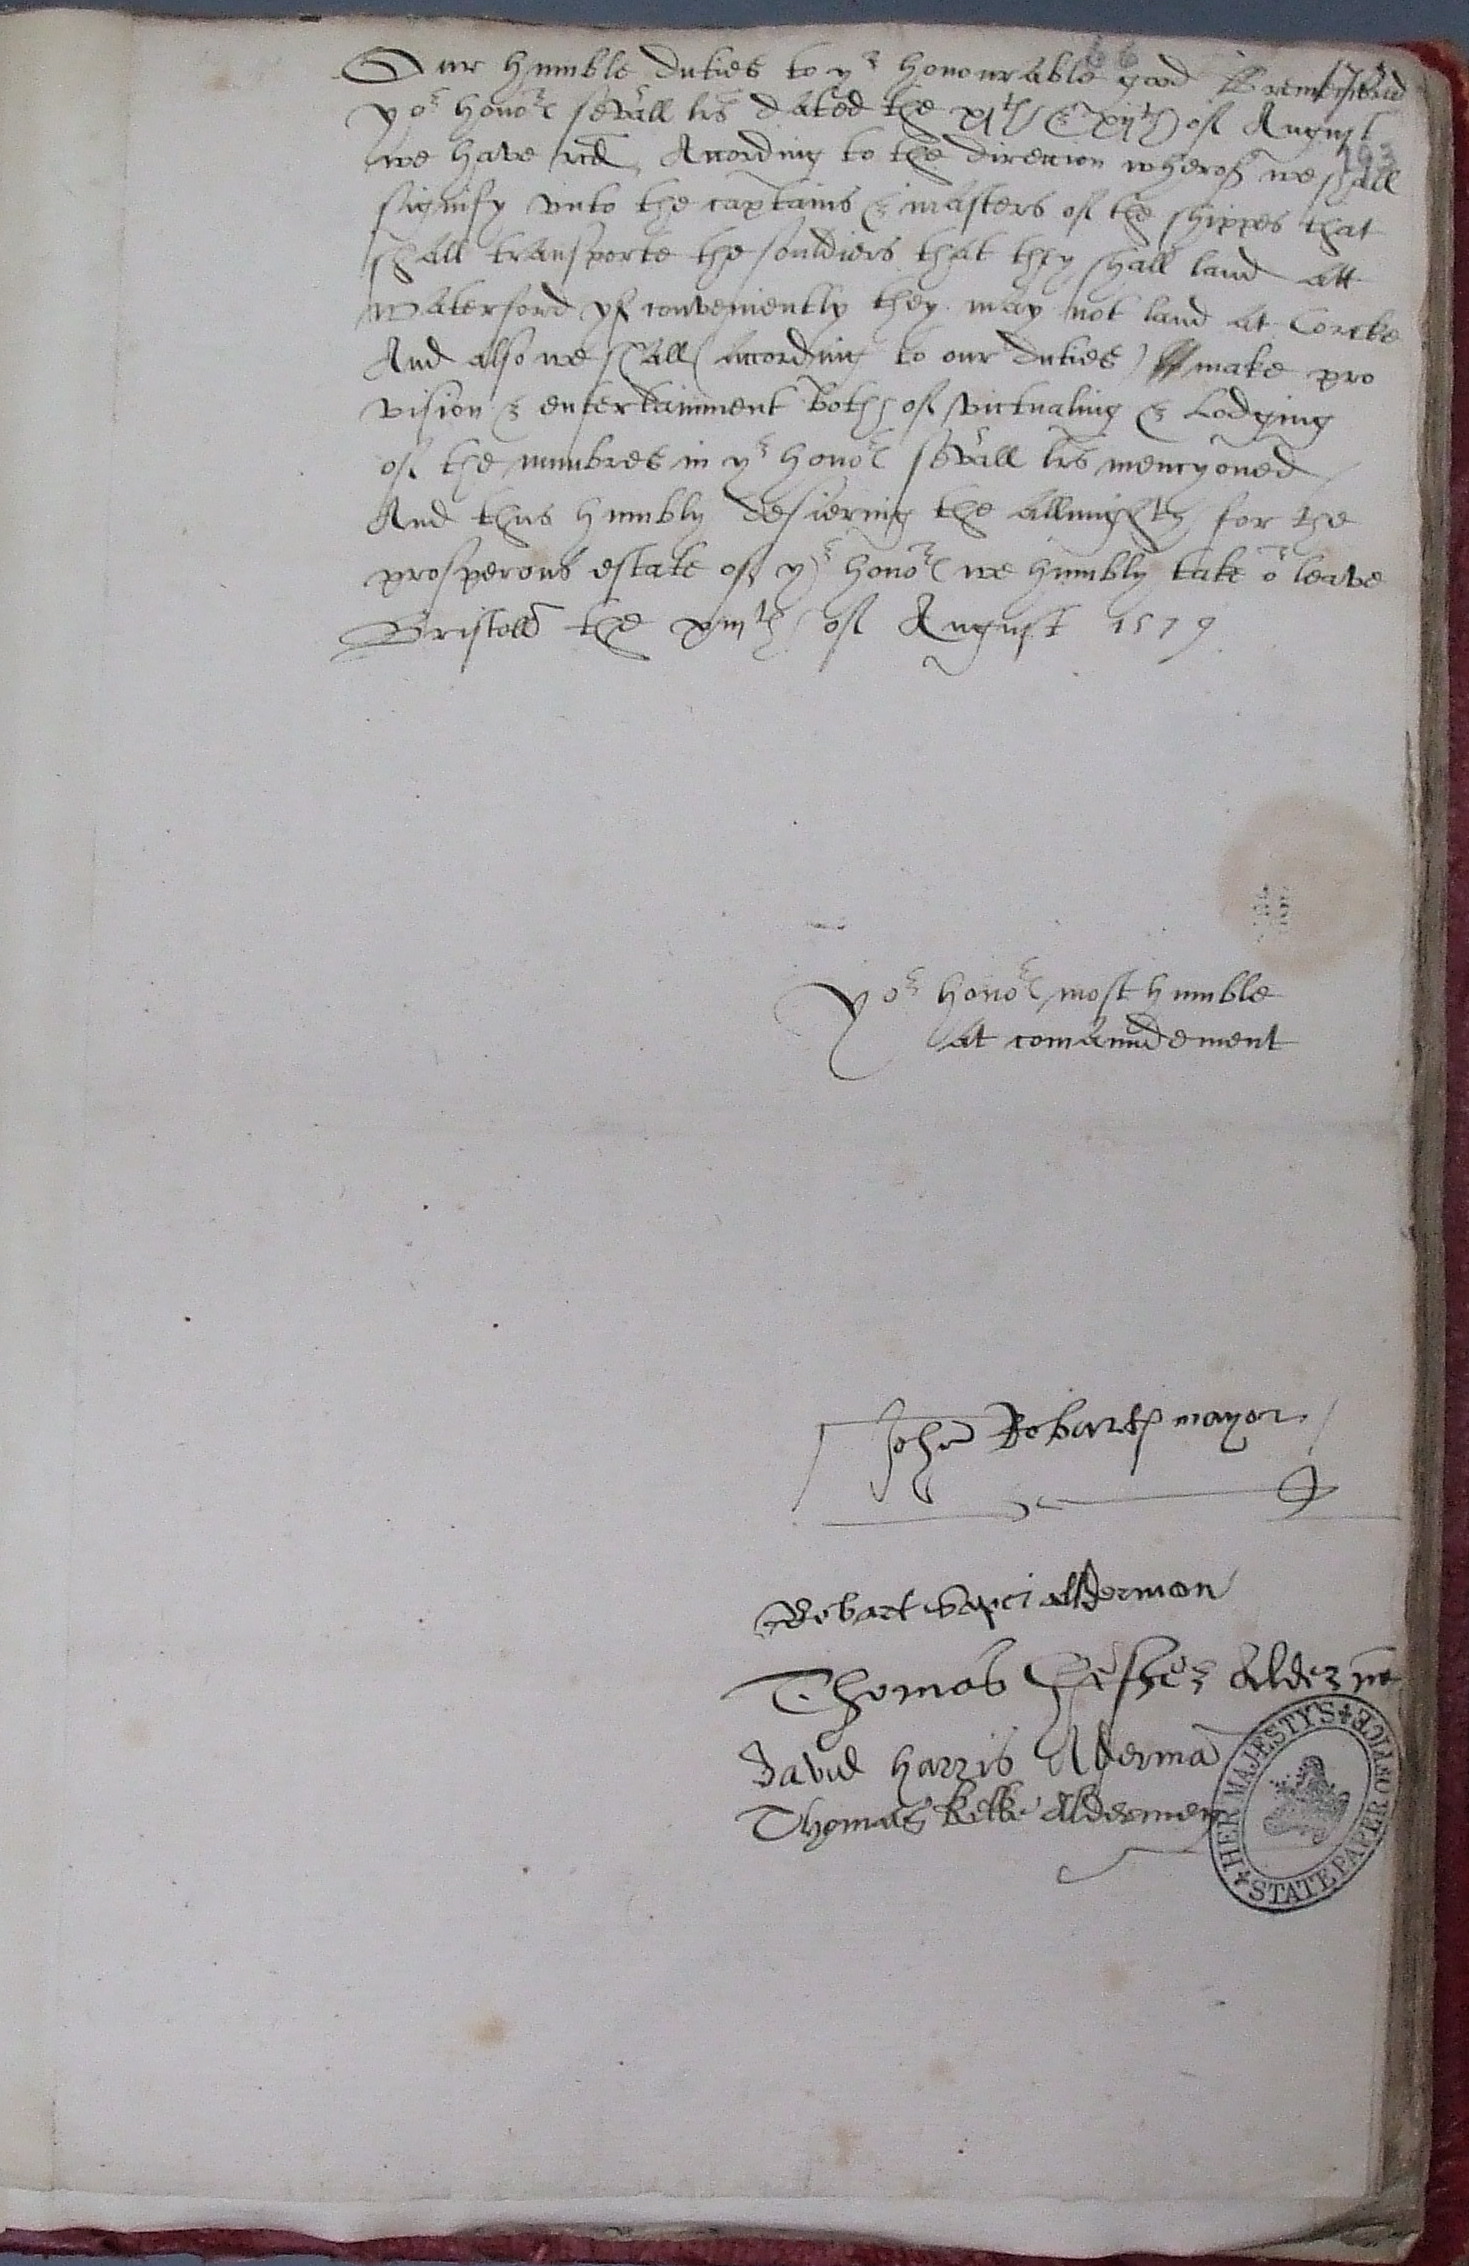 Our humble duties to yr honourable good L remembred
yor honors sevall lrs dated the xjth & xijth of August
we have rcd, Acording to the direction wherof we shall
signify vnto the captains & masters of the shippes that
shall transporte the souldiers that they shall land att
Waterford yf conveniently they may not land at Corcke
And also we shall (according to our duties) make pro
vision & entertainment both of victualing & Lodging
of the numbres in yr honors sevall lrs mencyoned
And thus humbly desiering the allmighty for the
prosperous estate of yr honors we humbly take or leave
Bristoll the xiijth of August 1579
Yor honors most humble
at comaundement
John Robartes mayor
Robart alderman
Thomas Alderman
David Harris Alderma
Thomas Kelke Aldermen
HER MAJESTY'S STATE PAPER OFFICE